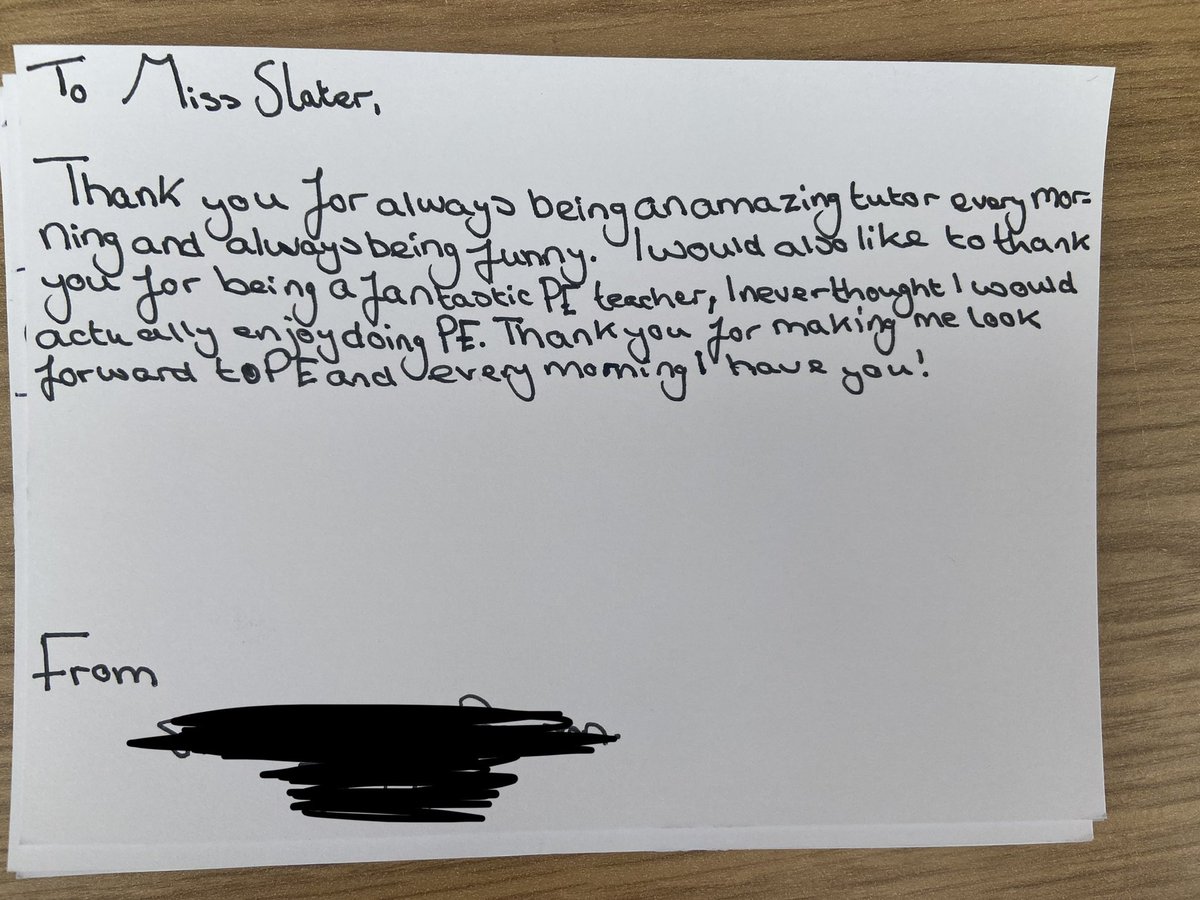 To Miss Slater,
Thank you for always being an amazing tutor every mor-
ning and always being funny. I would also like to thank
you for being a fantastic PE teacher, I never thought I would
actually enjoy doing PE. Thank you for making me look
forward to PE and every morning I have you!
From